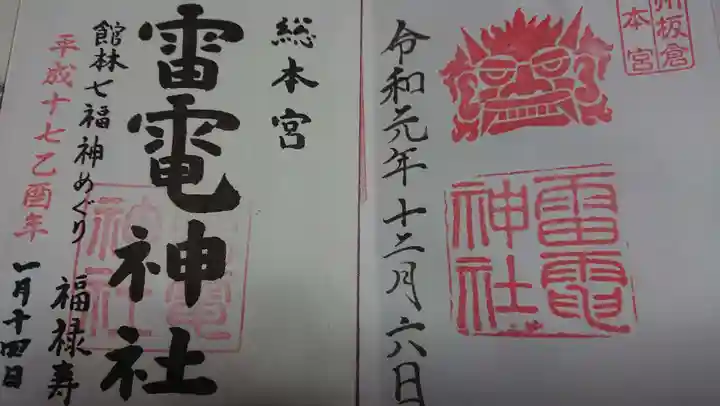 州板倉
本宮
雷電
神社
令和元年十二月六日
総本宮
雷電神社
雷電
神社
館林七福神めぐり 福禄寿
平成十七乙酉年
一月十四日